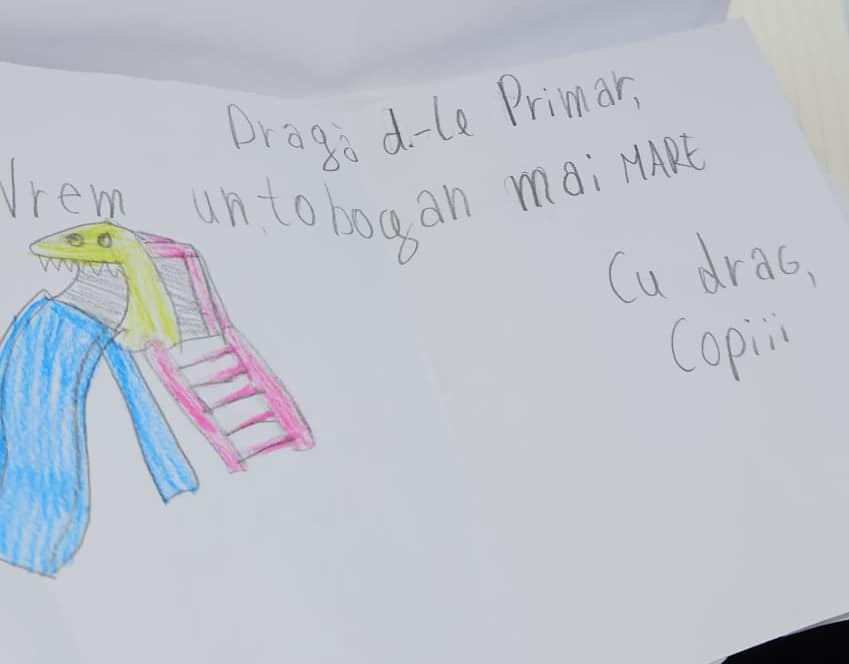 Dragă d.-le Primar,
Vrem un tobogan mai MARE
Cu drag,
Copiii